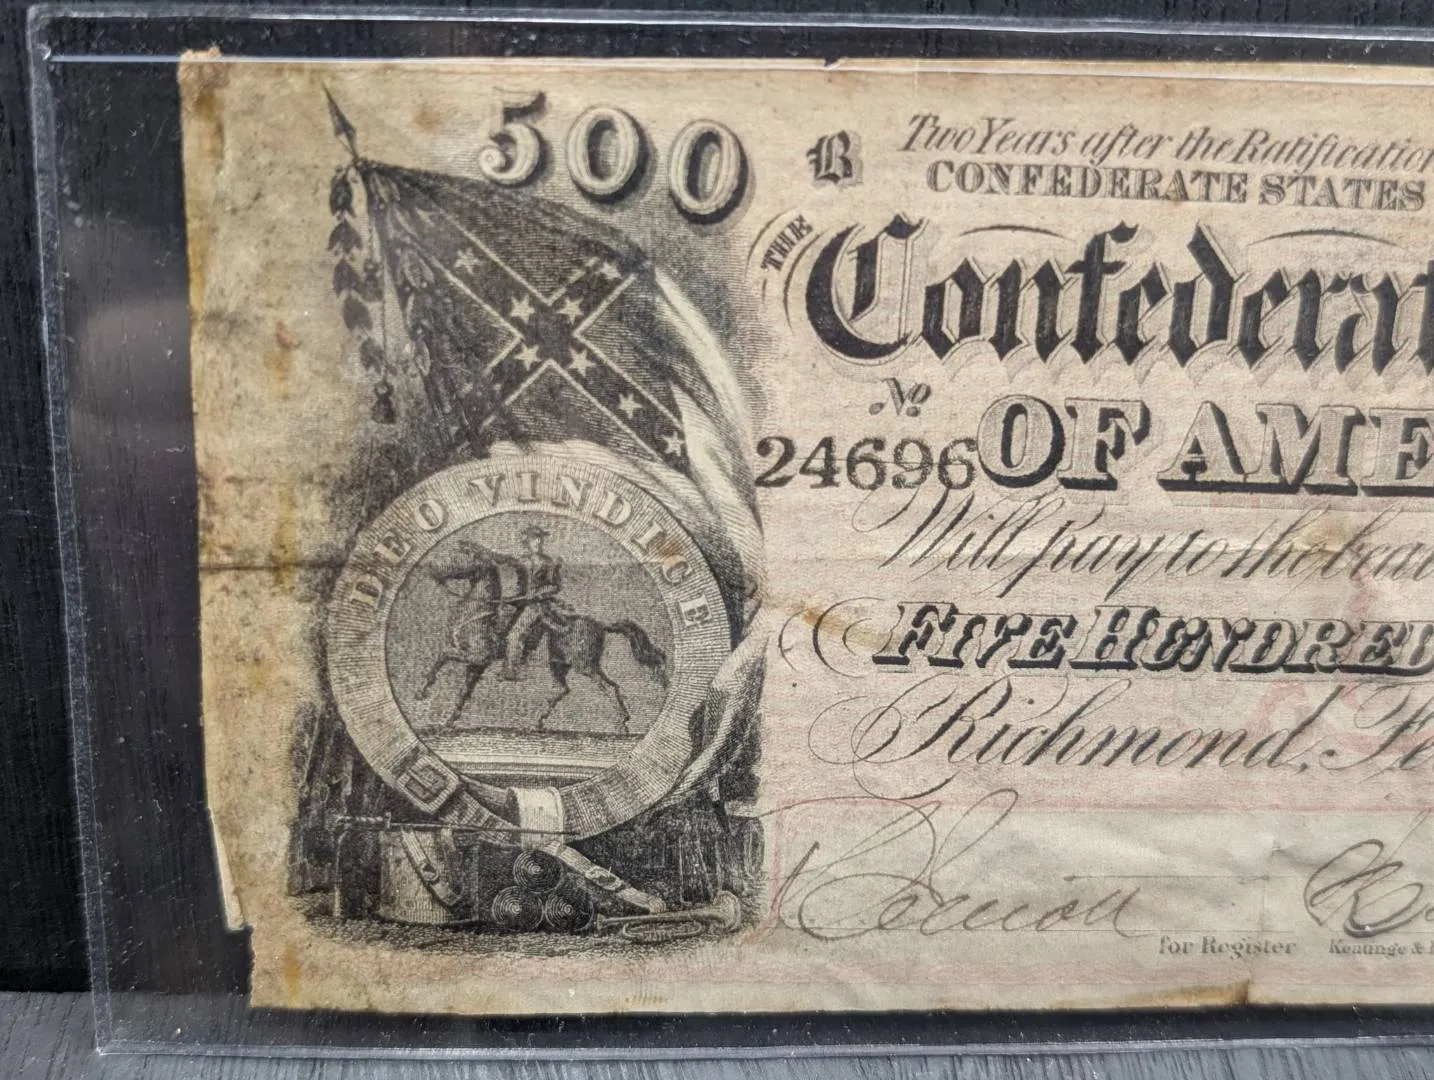 500
B
Two Years after the Ratification
CONFEDERATE STATES
THE
Confederat
No
24696
OF AME
Will pay to the bear
FIVE HUNDRED
Richmond, Fe
DEO VINDICE
for Register
Keatinge &